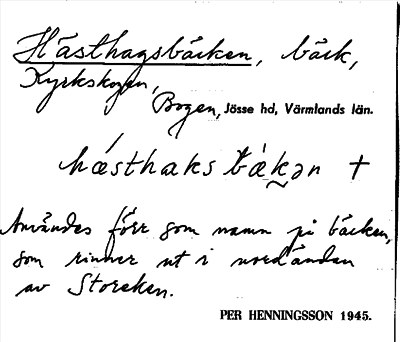 Hästhagsbäcken, bäck,
Kyrkskogen,
Bogen, Jösse hd, Värmlands län.
hásthaks bækən †
Användes förr som namn på bäcken,
som rinner ut i nordändan
av Storeken.
PER HENNINGSSON 1945.